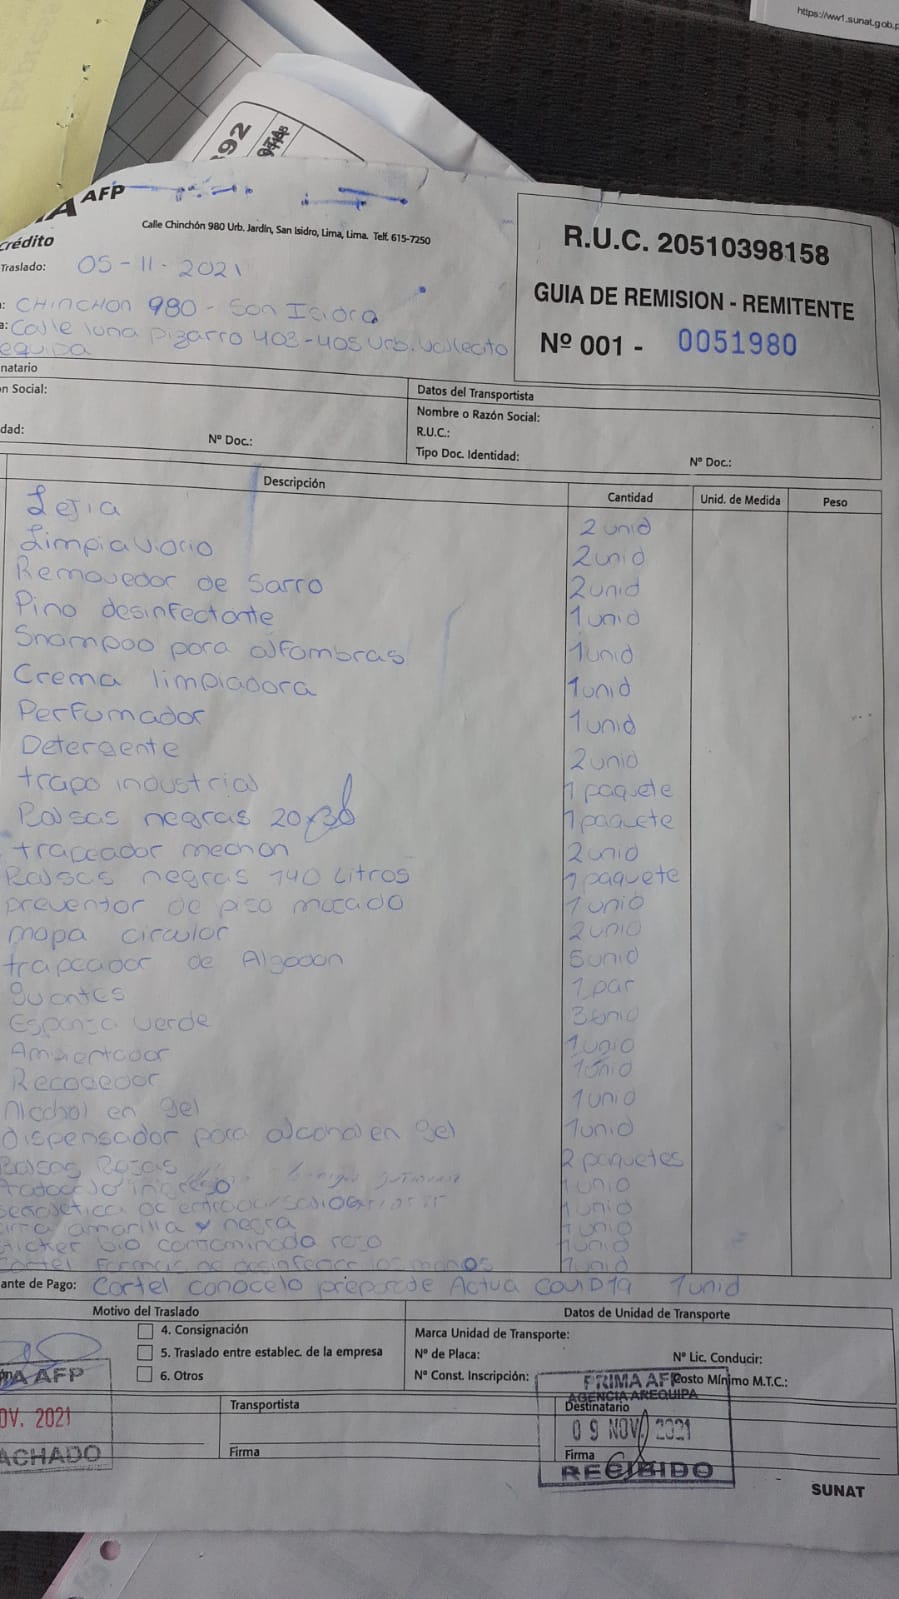 https://ww1.sunat.gob.p
392
A AFP
Calle Chinchón 980 Urb. Jardín, San Isidro, Lima, Lima. Telf. 615-7250
Crédito
Traslado: 05-11-2021
R.U.C. 20510398158
GUIA DE REMISION - REMITENTE
Nº 001 - 0051980
CHINCHON 980 - San Isidro
Calle luna pizarro 403-405 Urb. Vallecito
equipa
natario
n Social:
dad:
Nº Doc.:
Datos del Transportista
Nombre o Razón Social:
R.U.C.:
Tipo Doc. Identidad:
Nº Doc.:
Descripción Cantidad Unid. de Medida Peso
Lejia 2 unid
Limpiavidrio 2 unid
Removedor de Sarro 2 unid
Pino desinfectante 1 unid
Shampoo para alfombras 1 unid
Crema limpiadora 1 unid
Perfumador 1 unid
Detergente 2 unid
trapo industrial 1 paquete
Bolsas negras 20x30 1 paquete
trapeador mechon 2 unid
Bolsas negras 140 Litros 1 paquete
preventor de piso mojado 1 unid
mopa circular 2 unid
trapeador de Algodon 5 unid
guantes 1 par
Esponja verde 3 unid
Ambientador 1 unid
Recogedor 1 unid
Alcohol en gel 1 unid
dispensador para alcohol en gel 1 unid
Bolsas Rojas 2 paquetes
ingreso 1 unid
de entrada 1 unid
cinta amarilla y negra 1 unid
sticker bio contaminado rojo 1 unid
Cartel formas de desinfectar las manos 1 unid
ante de Pago: Cartel conocelo preparate Actua COVID19 1 unid
Motivo del Traslado
4. Consignación
5. Traslado entre establec. de la empresa
6. Otros
Datos de Unidad de Transporte
Marca Unidad de Transporte:
Nº de Placa:
Nº Lic. Conducir:
Nº Const. Inscripción:
Costo Mínimo M.T.C.:
A AFP
OV. 2021
ACHADO
Transportista
Firma
PRIMA AFP
AGENCIA AREQUIPA
Destinatario
09 NOV. 2021
Firma
RECIBIDO
SUNAT